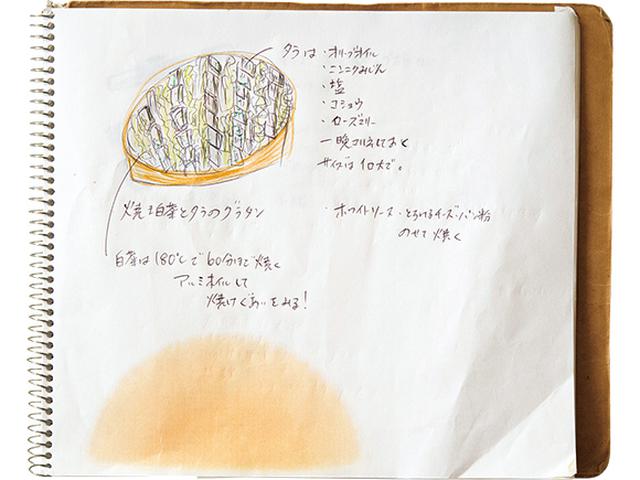 タラは ・オリーブオイル
・ニンニクみじん
・塩
・コショウ
・ローズマリー
一晩マリネしておく
サイズは1口大で。
焼き白菜とタラのグラタン
・ホワイトソース・とろけるチーズ・パン粉
のせて焼く
白菜は180℃で60分ほど焼く
アルミホイルして
焼けぐあいをみる!